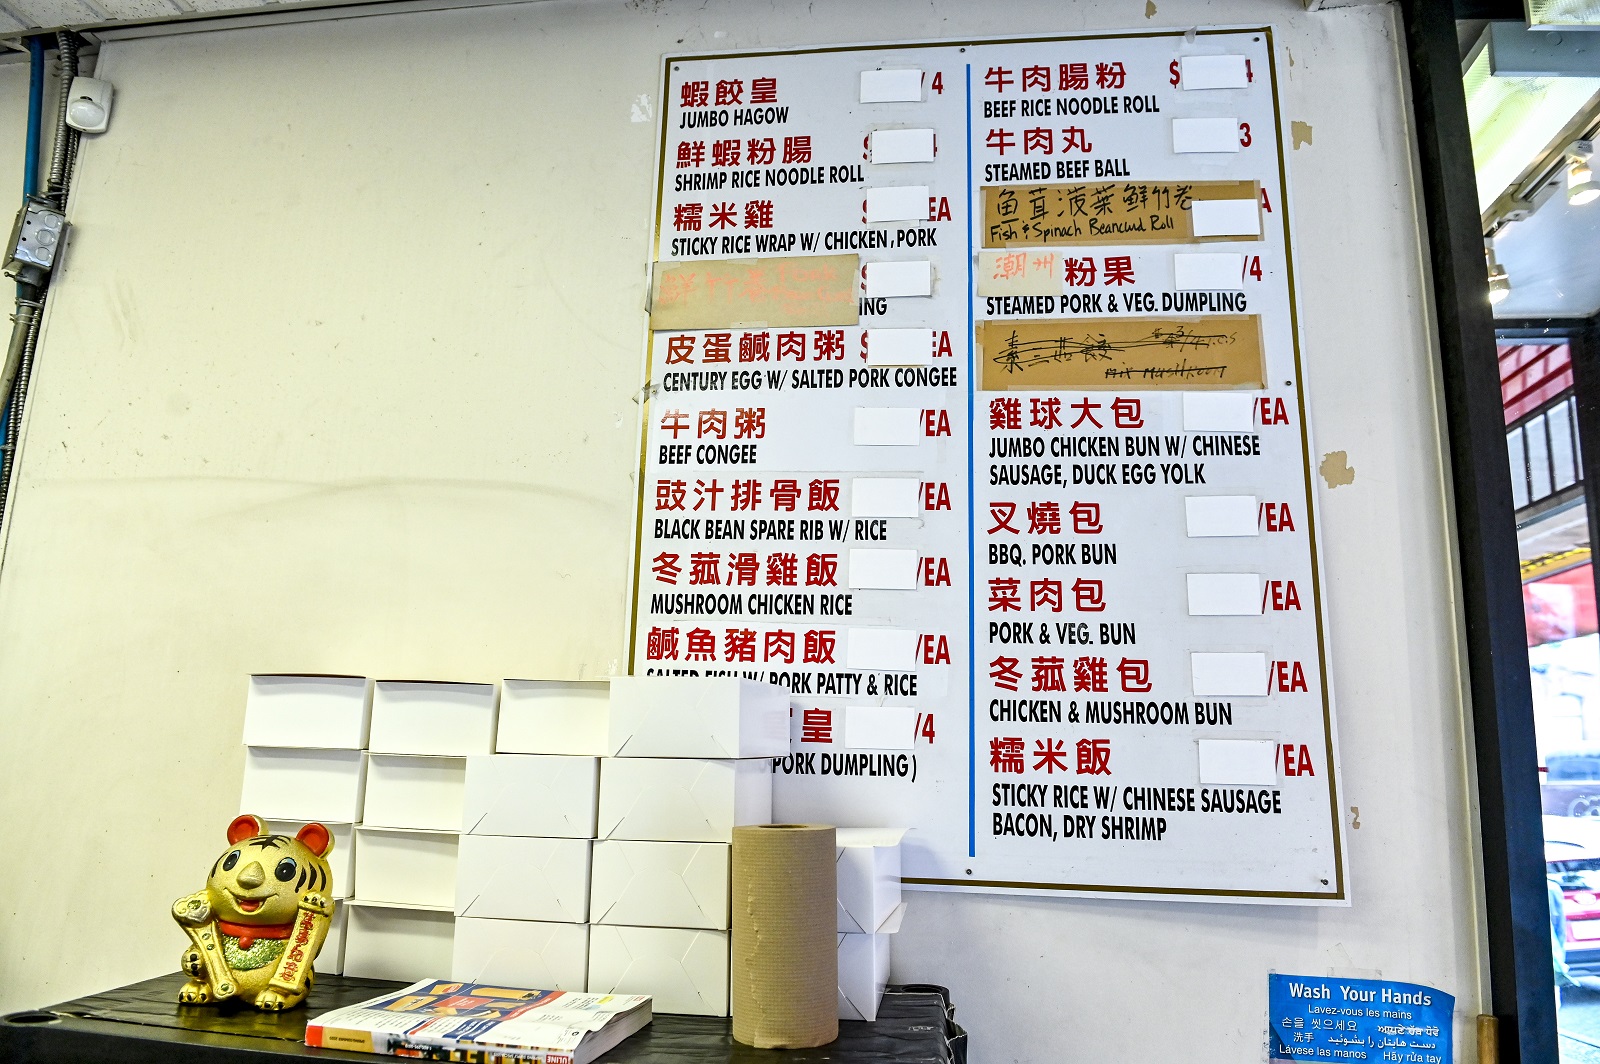 蝦餃皇 /4
JUMBO HAGOW
鮮蝦粉腸
SHRIMP RICE NOODLE ROLL
糯米雞 EA
STICKY RICE WRAP W/ CHICKEN, PORK
鮮竹卷
ING
皮蛋鹹肉粥 EA
CENTURY EGG W/ SALTED PORK CONGEE
牛肉粥 /EA
BEEF CONGEE
豉汁排骨飯 /EA
BLACK BEAN SPARE RIB W/ RICE
冬菰滑雞飯 /EA
MUSHROOM CHICKEN RICE
鹹魚豬肉飯 /EA
SALTED FISH W/ PORK PATTY & RICE
皇 /4
PORK DUMPLING)
牛肉腸粉 $ 4
BEEF RICE NOODLE ROLL
牛肉丸 3
STEAMED BEEF BALL
鱼茸菠菜鮮竹卷
Fish & Spinach Beancurd Roll
潮州粉果 /4
STEAMED PORK & VEG. DUMPLING
素 餃
MIX MUSHROOM
雞球大包 /EA
JUMBO CHICKEN BUN W/ CHINESE
SAUSAGE, DUCK EGG YOLK
叉燒包 /EA
BBQ. PORK BUN
菜肉包 /EA
PORK & VEG. BUN
冬菰雞包 /EA
CHICKEN & MUSHROOM BUN
糯米飯 /EA
STICKY RICE W/ CHINESE SAUSAGE
BACON, DRY SHRIMP
ULINE
Wash Your Hands
Lavez-vous les mains
손을 씻으세요
洗手 دست هایتان را بشوئید
Lávese las manos Hãy rửa tay